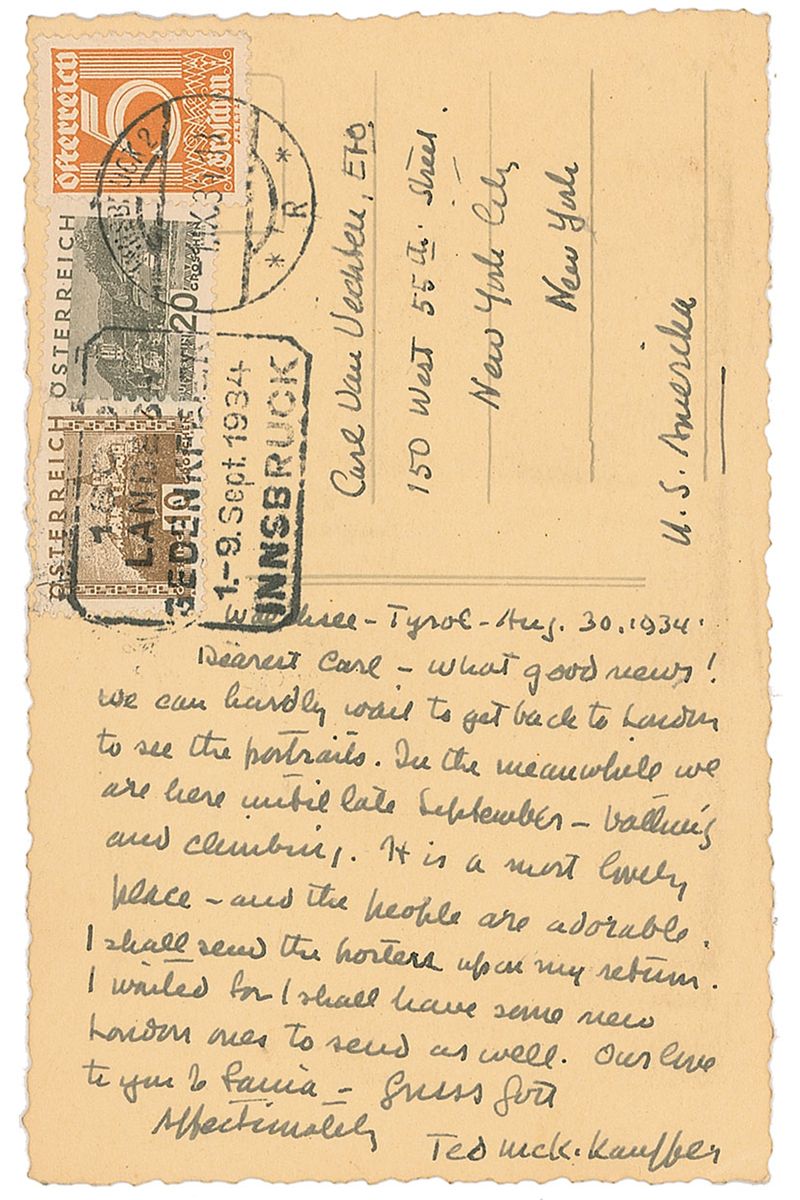 Österreich
5
Groschen
INNSBRUCK 2
IX.3
* R *
ÖSTERREICH
20
GROSCHEN
ÖSTERREICH
10
GROSCHEN
1.-9. Sept. 1934
INNSBRUCK
Carl Van Vechten, Etc.
150 West 55th Street.
New York City
New York
U.S. Amerika
Walchsee – Tyrol – Aug. 30. 1934.
Dearest Carl – what good news!
We can hardly wait to get back to London
to see the portraits. In the meanwhile we
are here until late September – bathing
and climbing. It is a most lovely
place – and the people are adorable.
I shall send the posters upon my return.
I waited for I shall have some new
London ones to send as well. Our love
to you & Fania – Gruss Gott
Affectionately
Ted McK. Kauffer